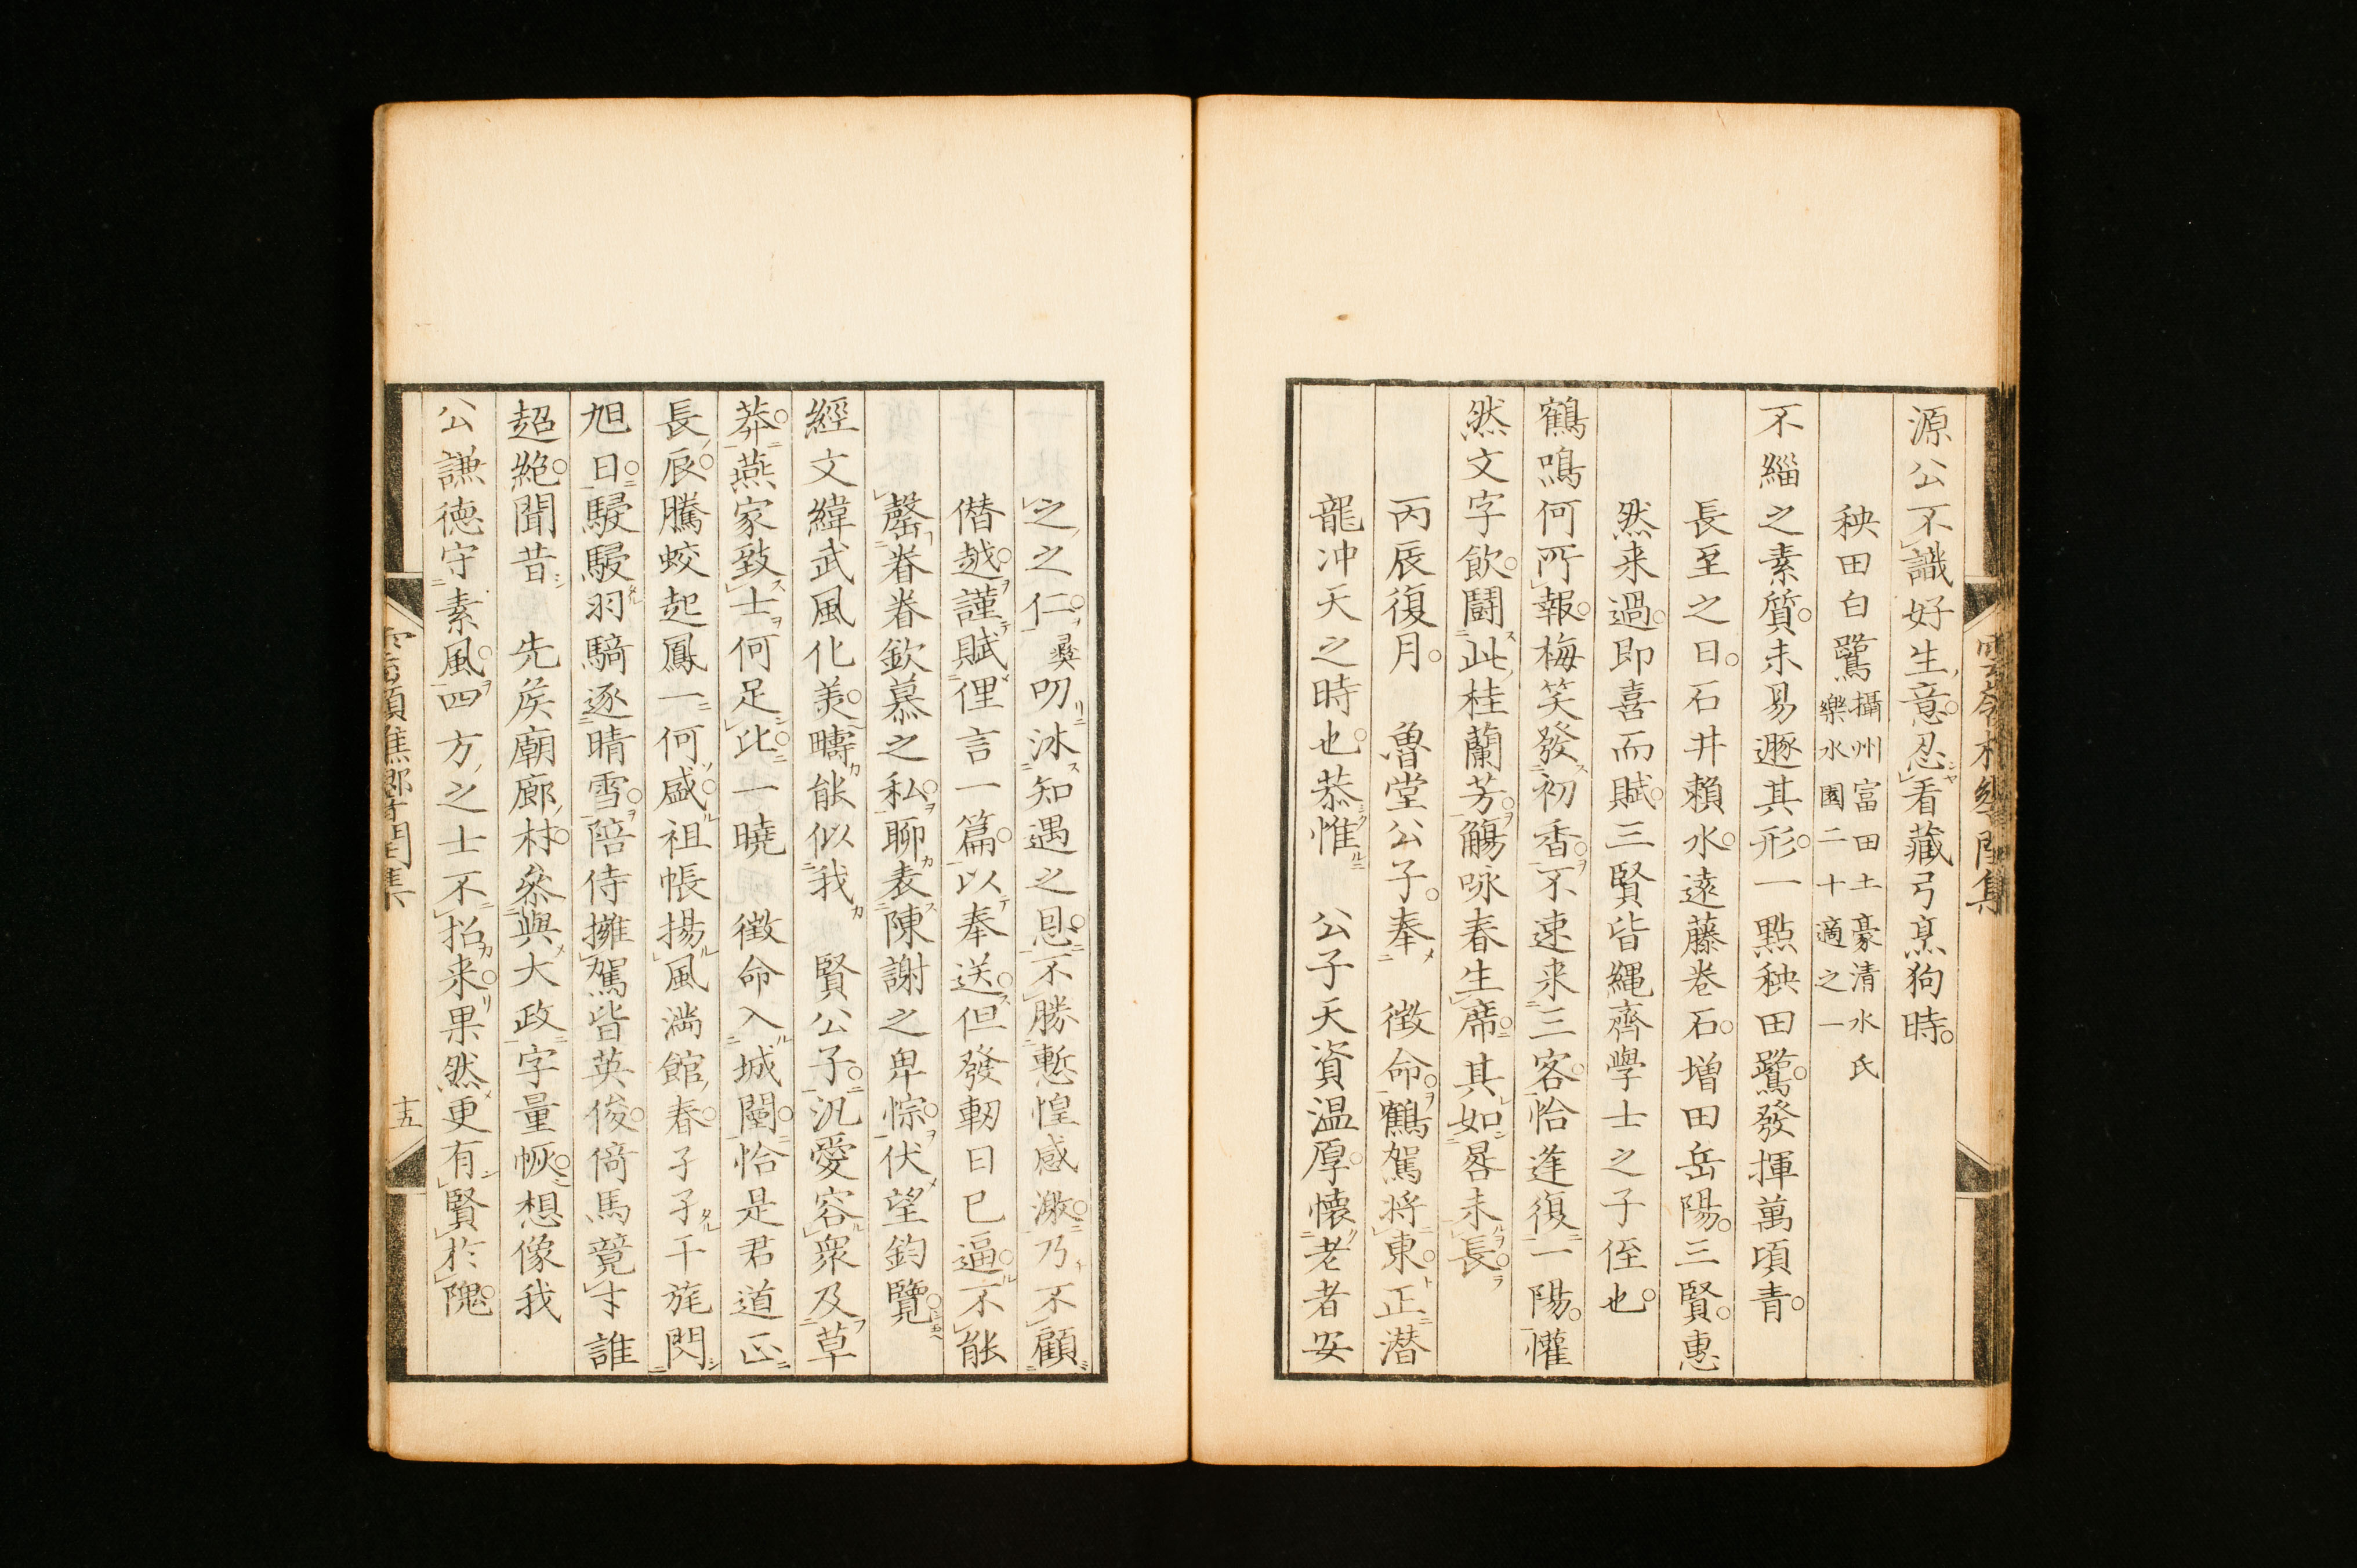 源公不識好生意忍看藏弓烹狗時
秧田白鷺攝州富田土豪清水氏
樂水園二十適之一
不緇之素質未易遯其形一點秧田鷺發揮萬頃青
長至之日石井賴水遠藤卷石増田岳陽三賢惠
然来過即喜而賦三賢皆縄齊學士之子侄也
鶴鳴何所報梅笑發初香不速来三客恰逢復一陽懽
然文字飲鬪此桂蘭芳觴咏春生席其如晷未長
丙辰復月 魯堂公子奉 徴命鶴駕将東正潜
龍冲天之時也恭惟 公子天資温厚懷老者安
之之仁彛叨沐知遇之恩不勝慙惶感激乃不顧
僣越謹賦俚言一篇以奉送但發軔日已逼不能
罄眷眷欽慕之私聊表陳謝之卑悰伏望鈞覽
經文緯武風化美疇能似我 賢公子汎愛容衆及草
莽燕家致士何足比一曉 徴命入城闉恰是君道正
長辰騰蛟起鳳一何盛祖帳揚風満館春孑孑干旄閃
旭日駸駸羽騎逐晴雪陪侍擁駕皆英俊倚馬競才誰
超絶聞昔 先矦廟廊材叅與大政字量恢想像我
公謙徳守素風四方之士不招来果然更有賢於隗
十五